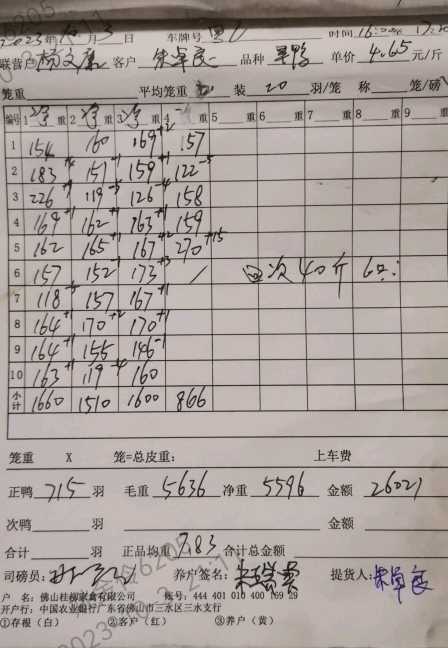 2023年10月3日 车牌号 时间 16:
联营户 杨文广 客户 朱卓良 品种 单价 4.65 元/斤
笼重 平均笼重 装 20 羽/笼 称 笼/磅
编号 1 重 2 重 3 重 4 重 5 重 6 重 7 重 8 重 9 重
1 154 160 169+2 157
2 183+4 157+1 159+1 122-5
3 226+4 119-3 126-4 158
4 169+1 162+1 163+1 159
5 162 165+1 167+2 270+15
6 157 152-1 173+3 / 次40斤6只
7 118-3 157 167+1
8 164+1 170+2 170+1
9 164+1 155 146-1
10 163+1 119-4 160
小计 1660 1510 1600 866
笼重 X 笼=总皮重: 上车费
正鸭 715 羽 毛重 5636 净重 5596 金额 26021
次鸭 羽 金额
合计 羽 正品均重 7.83 合计总金额
司磅员: 养户签名: 提货人: 朱卓良
户 名: 佛山桂柳家禽有限公司 账号: 444 401 010 400 169 29
开户行: 中国农业银行广东省佛山市三水区三水支行
①存根(白) ②客户(红) ③养户(黄)